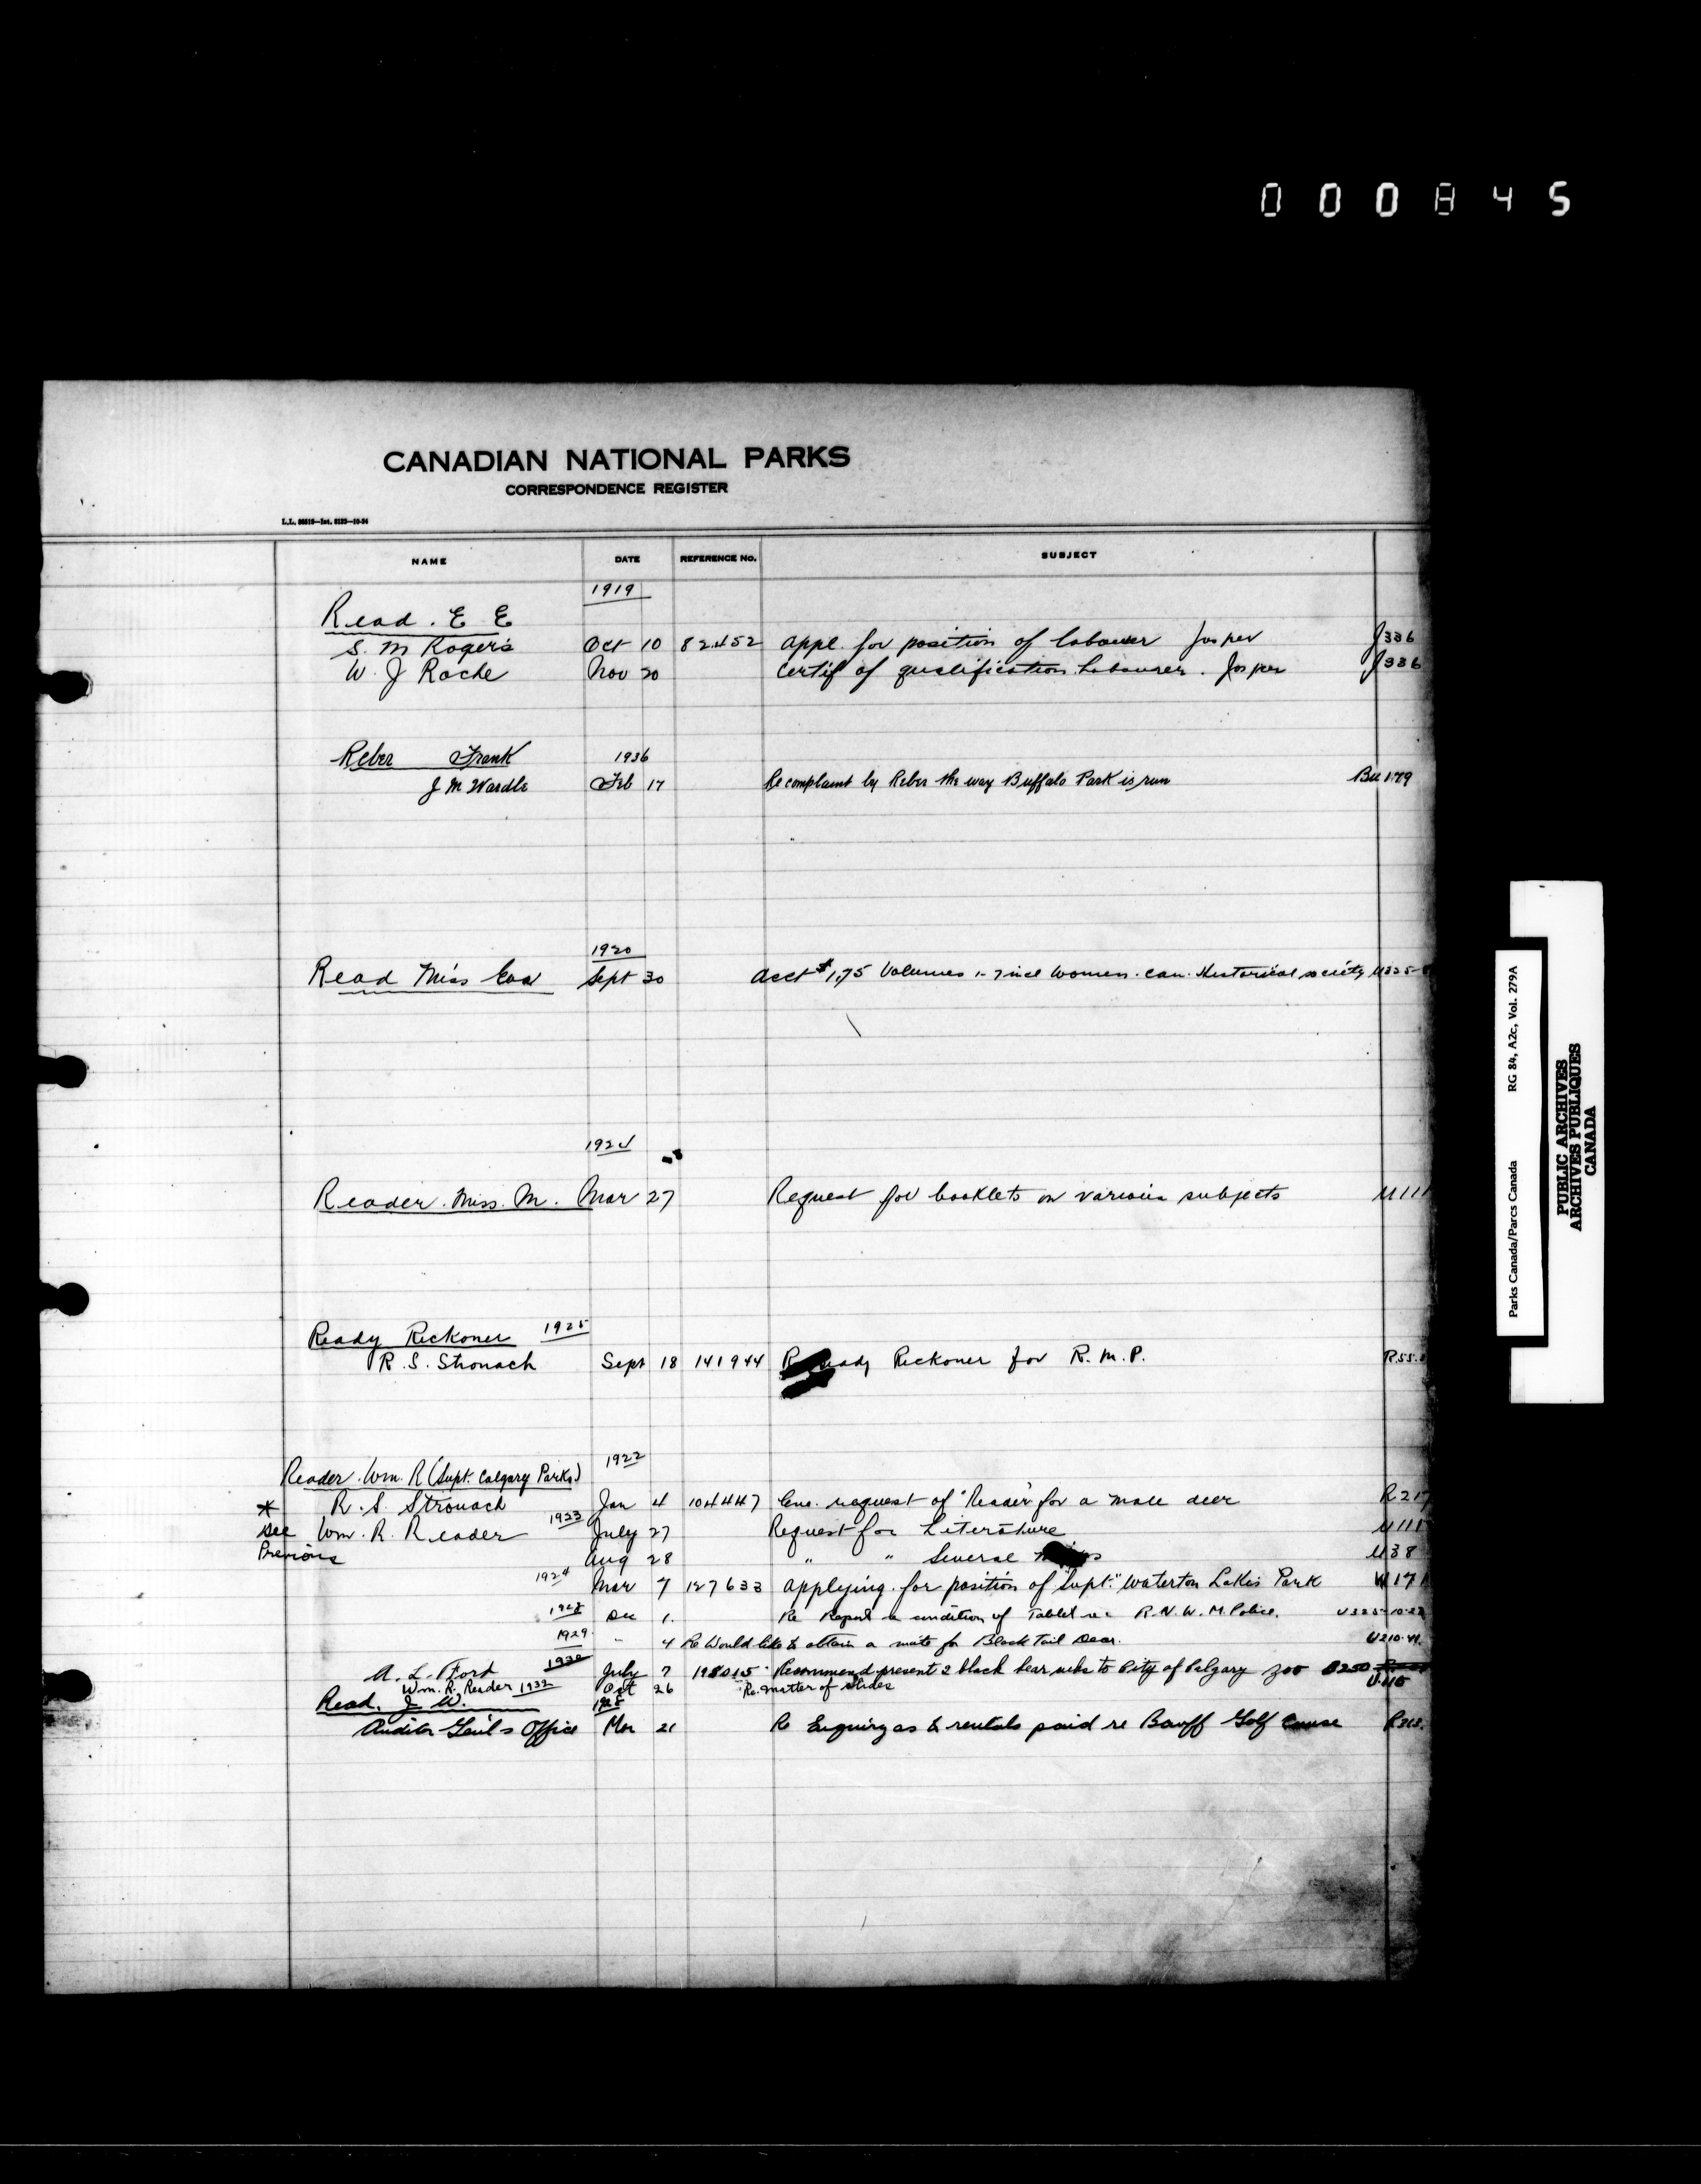 000845
CANADIAN NATIONAL PARKS
CORRESPONDENCE REGISTER
NAME DATE REFERENCE No. SUBJECT
1919
Read. E E
S. M Rogers Oct 10 82452 appl. for position of labourer Jasper J336
W. J Roche Nov 20 Certif of qualification labourer. Jasper J336
Reber Frank 1936
J M Wardle Feb 17 Re complaint by Reber the way Buffalo Park is run Bu 179
1920
Read Miss Sept 30 acct $1.75 Volumes 1-7 incl Women. Can. Historical society U325-
1924
Reader. Miss. M. Mar 27 Request for booklets on various subjects U111
Ready Reckoner 1925
R. S. Stronach Sept 18 141944 Ready Reckoner for R. M. P. R55.
Reader. Wm. R (Supt. Calgary Parks) 1922
* R. S. Stronach Jan 4 104447 request of "Reader" for a male deer R217
See Wm. R. Reader 1923 July 27 Request for Literature U111
Previous Aug 28 " " Several U38
1924 Mar 7 127633 applying. for position of "Supt." Waterton Lakes Park W171
1928 Dec 1. Re Report condition of Tablet re R. N. W. M. Police. U325-10-
1929 " 4 Re Would like to obtain a mate for Black Tail Dear. U210
A. L. Ford 1930 July 7 198015 Recommend present 2 black bear cubs to City of Calgary zoo B250
Wm. R. Reader 1932 Oct 26 Re. matter of slides U.115
Read. J W. 1928
Auditor Genl's Office Mar 21 Re Enquiry as to rentals paid re Banff Golf Course R318.
Parks Canada/Parcs Canada RG 84, A2c, Vol. 279A
PUBLIC ARCHIVES
ARCHIVES PUBLIQUES
CANADA